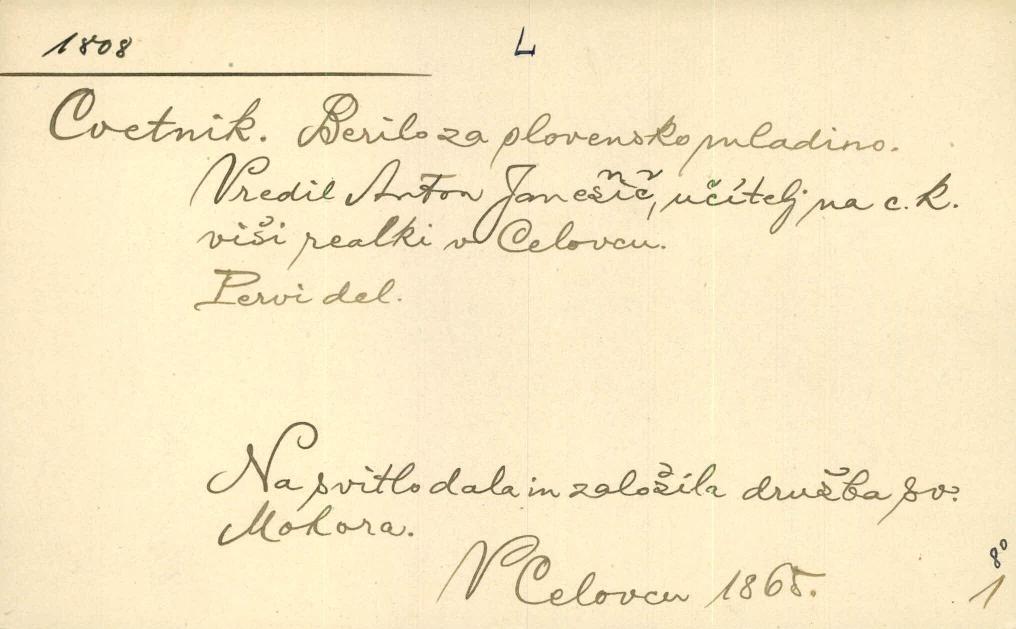 1808
L
Cvetnik. Berilo za slovensko mladino.
Vredil Anton Janešič, učitelj na c. k.
viši realki v Celovcu.
Pervi del.
Na svitlo dala in založila družba sv.
Mohora.
V Celovcu 1865.
8°
1